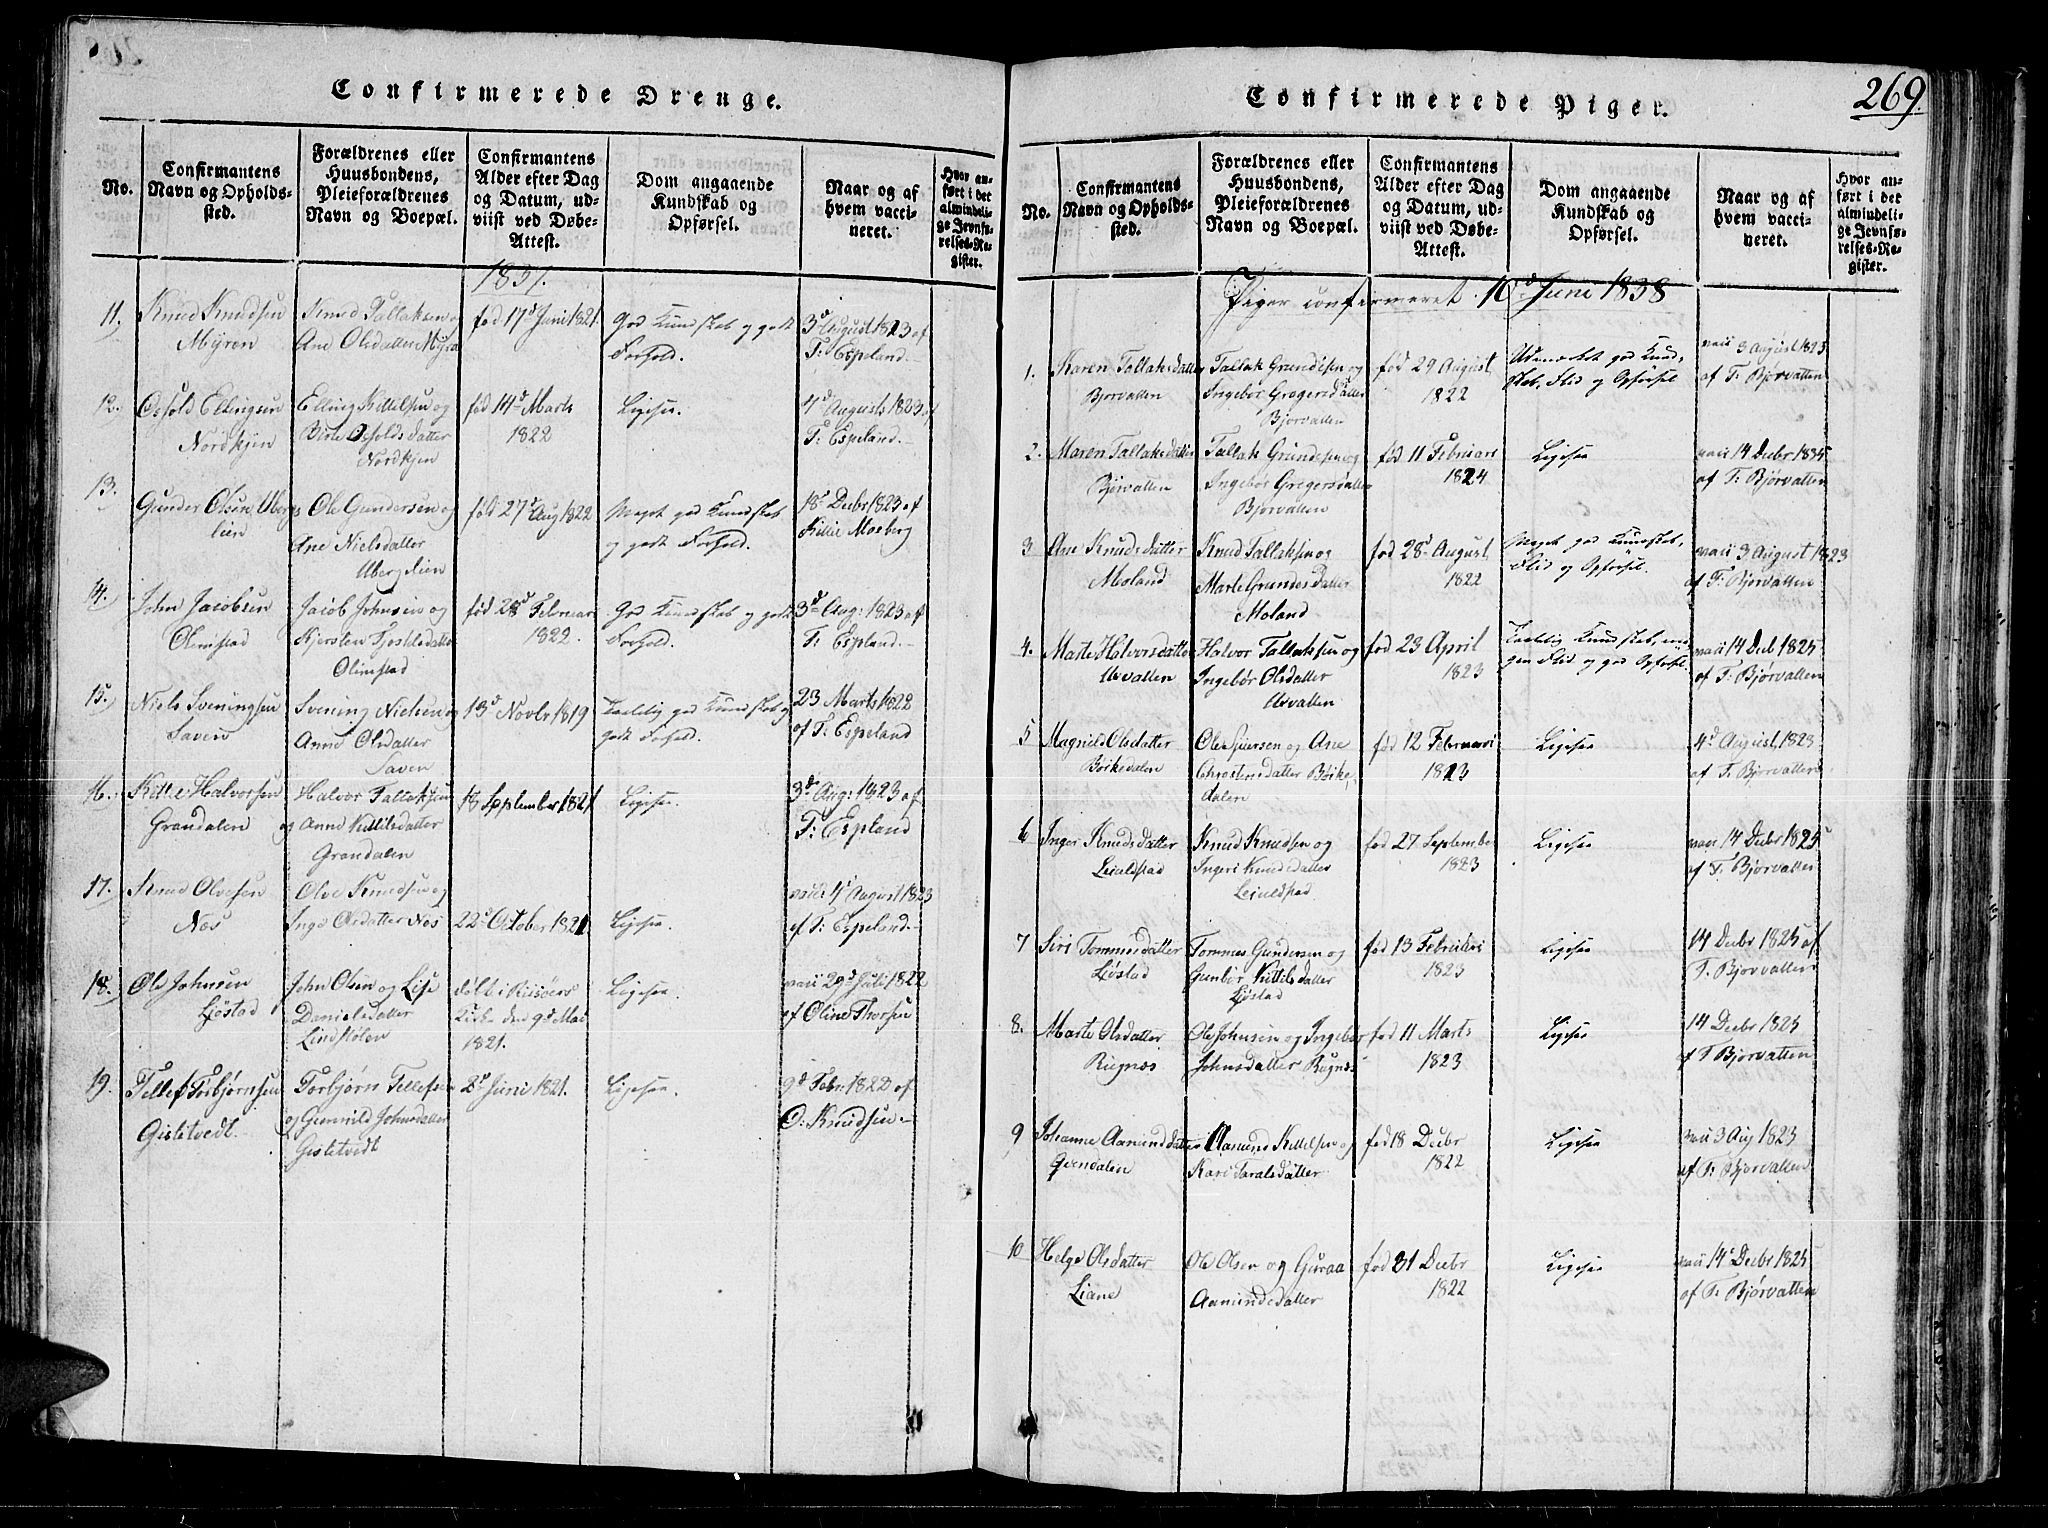 Confirmerede Drenge.
No.
Confirmantens
Navn og Opholds-
sted.
Forældrenes eller
Huusbondens,
Pleieforældrenes
Navn og Boepæl.
Confirmantens
Alder efter Dag
og Datum, ud-
viist ved Døbe-
Attest.
Dom angaaende
Kundskab og
Opførsel.
Naar og af
hvem vacci-
neret.
Hvor an-
ført i det
almindeli-
ge Jevnfø-
relses-Re-
gister.
1837.
11. Knud Knudsen
Myren
Knud Tallaksen og
Ane Olsdatter Myra
fød 17d Juni 1821.
God Kundskab og godt
Forhold.
3d August 1823 af
T: Espeland.
12. Osfold Ellingsen
Nordkjen
Elling Kittelsen og
Birte Osfoldsdatter
Nordkjen
fød 14d Marts
1822
Ligesaa.
4d Augusts 1823 af
T: Espeland.
13.
Gunder Olsen Uberg-
lien
Ole Gundersen og
Ane Nielsdatter
Uberglien
fød 27d Aug 1822
Meget god Kundskab
og godt Forhold.
18d Decbr 1823 af
Kittil Moeberg
14. John Jacobsen
Olimstad
Jacob Johnsen og
Kjersten Tjostelsdatter
Olimstad
fød 28d Februar
1822.
God Kundskab og godt
Forhold.
3d Aug: 1823 af
T: Espeland.
15. Niels Sveningsen
Saven
Svening Nielsen og
Anne Olsdatter
Saven
13d Novbr 1819
Taalelig god Kundskab og
godt Forhold.
23 Marts 1822
af T: Espeland
16. Kittel Halvorsen
Grandalen
Halvor Tallaksen
og Anne Kittilsdatter
Grandalen
18 September 1821.
Ligesaa.
3d Aug: 1823 af
T: Espeland
17. Knud Olvesen
Næs
Olve Knudsen og
Inge Olsdatter Næs
22d October 1821
Ligesaa.
vacc: 4d August 1823
af T: Espeland.
18. Ole Johnsen
Ljøstad
John Olsen og Lise
Danielsdatter
Lindstølen
døbt i Risøers
Kirke den 9d Mai
1821.
Ligesaa.
vacc 29d Juli 1822
af Oline Thorsen
19. Tellef Torbjørnsen
Gisletvedt.
Torbjørn Tellefsen
og Gunnild Johnsdatter
Gisletvedt
2d Juni 1821.
Ligesaa.
9d Febr: 1822 af
O: Knudsen
Confirmerede Piger.
269.
No.
Confirmantens
Navn og Opholds-
sted.
Forældrenes eller
Huusbondens,
Pleieforældrenes
Navn og Boepæl.
Confirmantens
Alder efter Dag
og Datum, ud-
viist ved Døbe-
Attest.
Dom angaaende
Kundskab og
Opførsel.
Naar og af
hvem vacci-
neret.
Hvor an-
ført i det
almindeli-
ge Jevnfø-
relses-Re-
gister.
Piger confirmeret 10d Juni 1838
1. Karen Tallaksdatter
Bjorvatten
Tallak Grundesen og
Ingebor Gregersdatter
Bjorvatten
fød 29 August
1822
Udmærket god Kund-
skab, Flid og Opførsel
vacc 3 August 1823
af T: Bjorvatten
2. Maren Tallaksdatter
Bjørvatten
Tallak Grundesen og
Ingebor Gregersdatter
Bjorvatten
fød 11 Februari
1824
Ligesaa
vacc 14 Decbr 1825
af T: Bjørvatten
3. Ane Knudsdatter
Moland
Knud Tallaksen og
Marte Grunnesdatter
Moland
fød 28d August
1822
Meget god Kundskab,
Flid og Opførsel.
vacc 3 August 1823
af T: Bjorvatten
4. Marte Halvorsdatter
Urvatten
Halvor Tallaksen og
Ingebør Olsdatter
Urvatten
fød 23 April
1823
Taalelig Kundskab, me-
gen Flid og god Opførsel
vacc 14 Decb 1825
af T: Bjørvatten
5 Magnild Olsdatter
Bøikedalen
Ole Siversen og Ane
Christensdatter Bøike-
dalen
fød 12 Februari
1823
Ligesaa
4d August 1823
af T: Bjorvatten
6 Ingeri Knudsdatter
Leiuldstad
Knud Knudsen og
Ingeri Knudsdatter
Leiuldstad
fød 27 September
1823
Ligesaa
vacc 14 Decbr 1825
af T: Bjørvatten
7 Siri Tommesdatter
Ljøstad
Tommes Gundersen og
Gunbor Kittilsdatter
Ljøstad
fød 13 Februari
1823
Ligesaa
14 Decbr 1825 af
T: Bjorvatten
8. Marte Olsdatter
Rugnæs
Ole Johnsen og Ingebor
Johnsdatter Rugnæs
fød 11 Marts
1823
Ligesaa
14 Decbr 1825
af T Bjorvatten
9 Johanne Aamundsdatter
Qvendalen
Aamund Kittelsen og
Kari Taralsdatter
fød 18 Decbr
1822
Ligesaa
vacc 3 Aug 1823
af T: Bjorvatten
10 Helge Olsdatter
Liane
Ole Olsen og Guraa
Aamundsdatter
fød 31 Decbr
1822
Ligesaa
vacc 14d Decbr 1825
af T: Bjørvatten